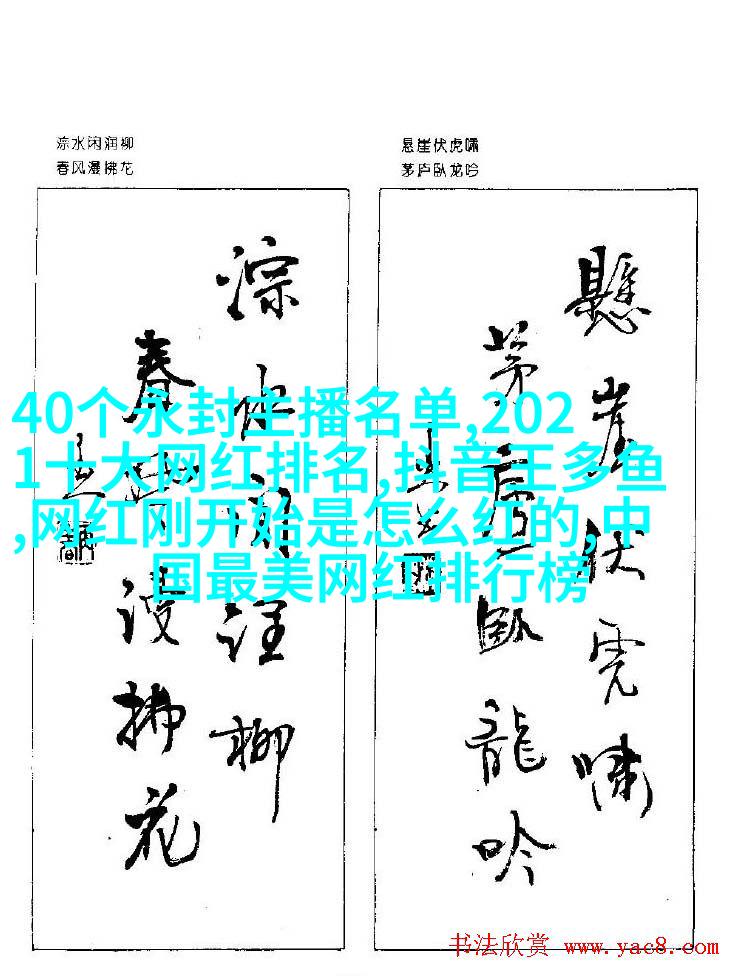 淙水闲润柳
春风漫拂花
悬崖伏虎啸
茅庐卧龙吟
淙水闲润柳
春风漫拂花
懸崖伏虎啸
茅庐卧龍吟
40个永封主播名单,202
1十大网红排名,抖音王多鱼
,网红刚开始是怎么红的,中
国最美网红排行榜
书法欣赏 www.yac8.com